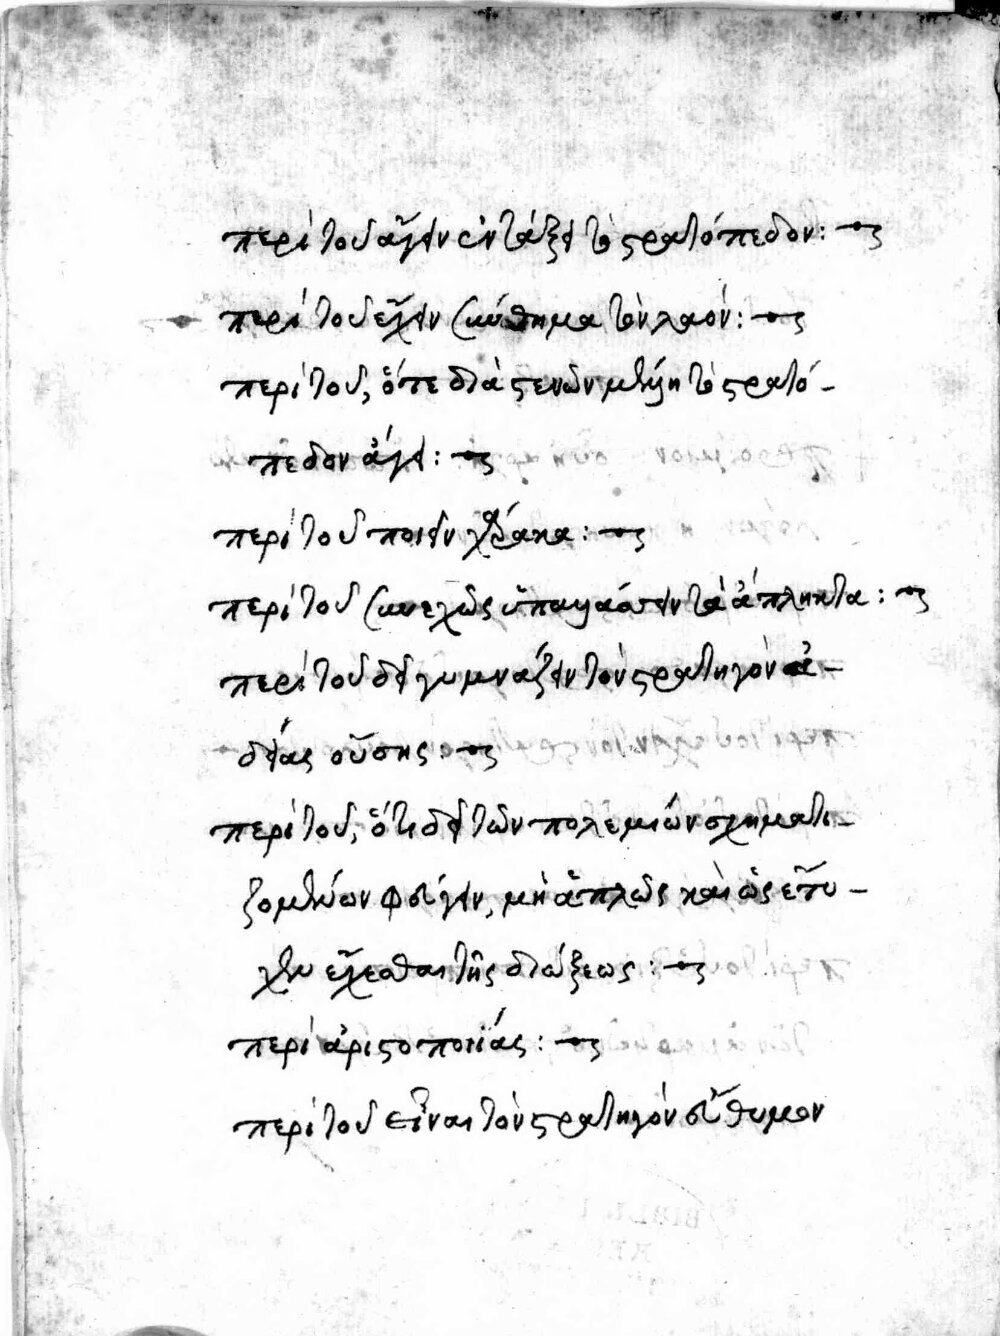 περὶ τοῦ ἄγειν ἐν τάξει τὸ στρατόπεδον:
περὶ τοῦ ἔχειν συγκρότημα τὸν λαόν:
περὶ τοῦ, ὅτε διὰ στενῶν μέλλῃ τὸ στρατό-
πεδον ἄγειν:
περὶ τοῦ ποιεῖν χάρακα:
περὶ τοῦ συνεχῶς ὑπαλλάσσειν τὰ ἄπληκτα:
περὶ τοῦ δεῖ γυμνάζειν τὸν στρατηγὸν ἀ-
δείας οὔσης:
περὶ τοῦ, ὅτι δεῖ τῶν πολεμίων σχηματι-
ζομένων φεύγειν, μὴ ἁπλῶς καὶ ὡς ἔτυ-
χεν ἔχεσθαι τῆς διώξεως:
περὶ ἀριστοποιΐας:
περὶ τοῦ εἶναι τὸν στρατηγὸν εὔθυμον